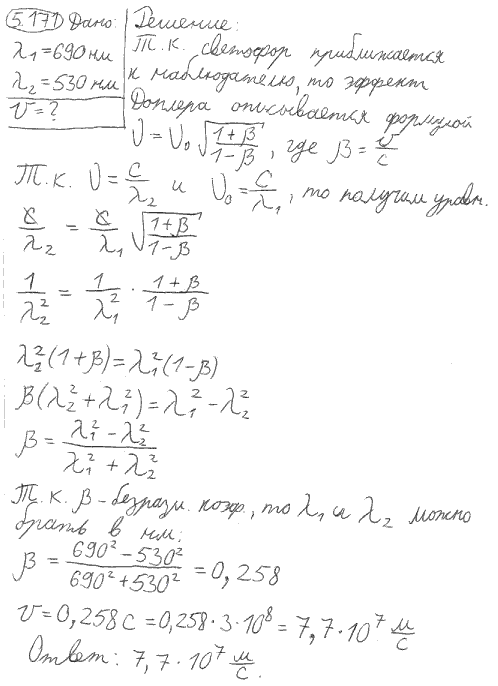 5.171 Дано: Решение:
λ₁=690 нм Т.к. светофор приближается
λ₂=530 нм к наблюдателю, то эффект
v=? Доплера описывается формулой
υ=υ₀√((1+β)/(1-β)), где β=v/c
Т.к. υ=c/λ₂ и υ₀=c/λ₁, то получим уравн.
c/λ₂ = c/λ₁ √((1+β)/(1-β))
1/λ₂² = 1/λ₁² · (1+β)/(1-β)
λ₂²(1+β)=λ₁²(1-β)
β(λ₂²+λ₁²)=λ₁²-λ₂²
β=(λ₁²-λ₂²)/(λ₁²+λ₂²)
Т.к. β-безразм. коэф., то λ₁ и λ₂ можно
брать в нм:
β=(690²-530²)/(690²+530²)=0,258
v=0,258c=0,258·3·10⁸=7,7·10⁷ м/с
Ответ: 7,7·10⁷ м/с.